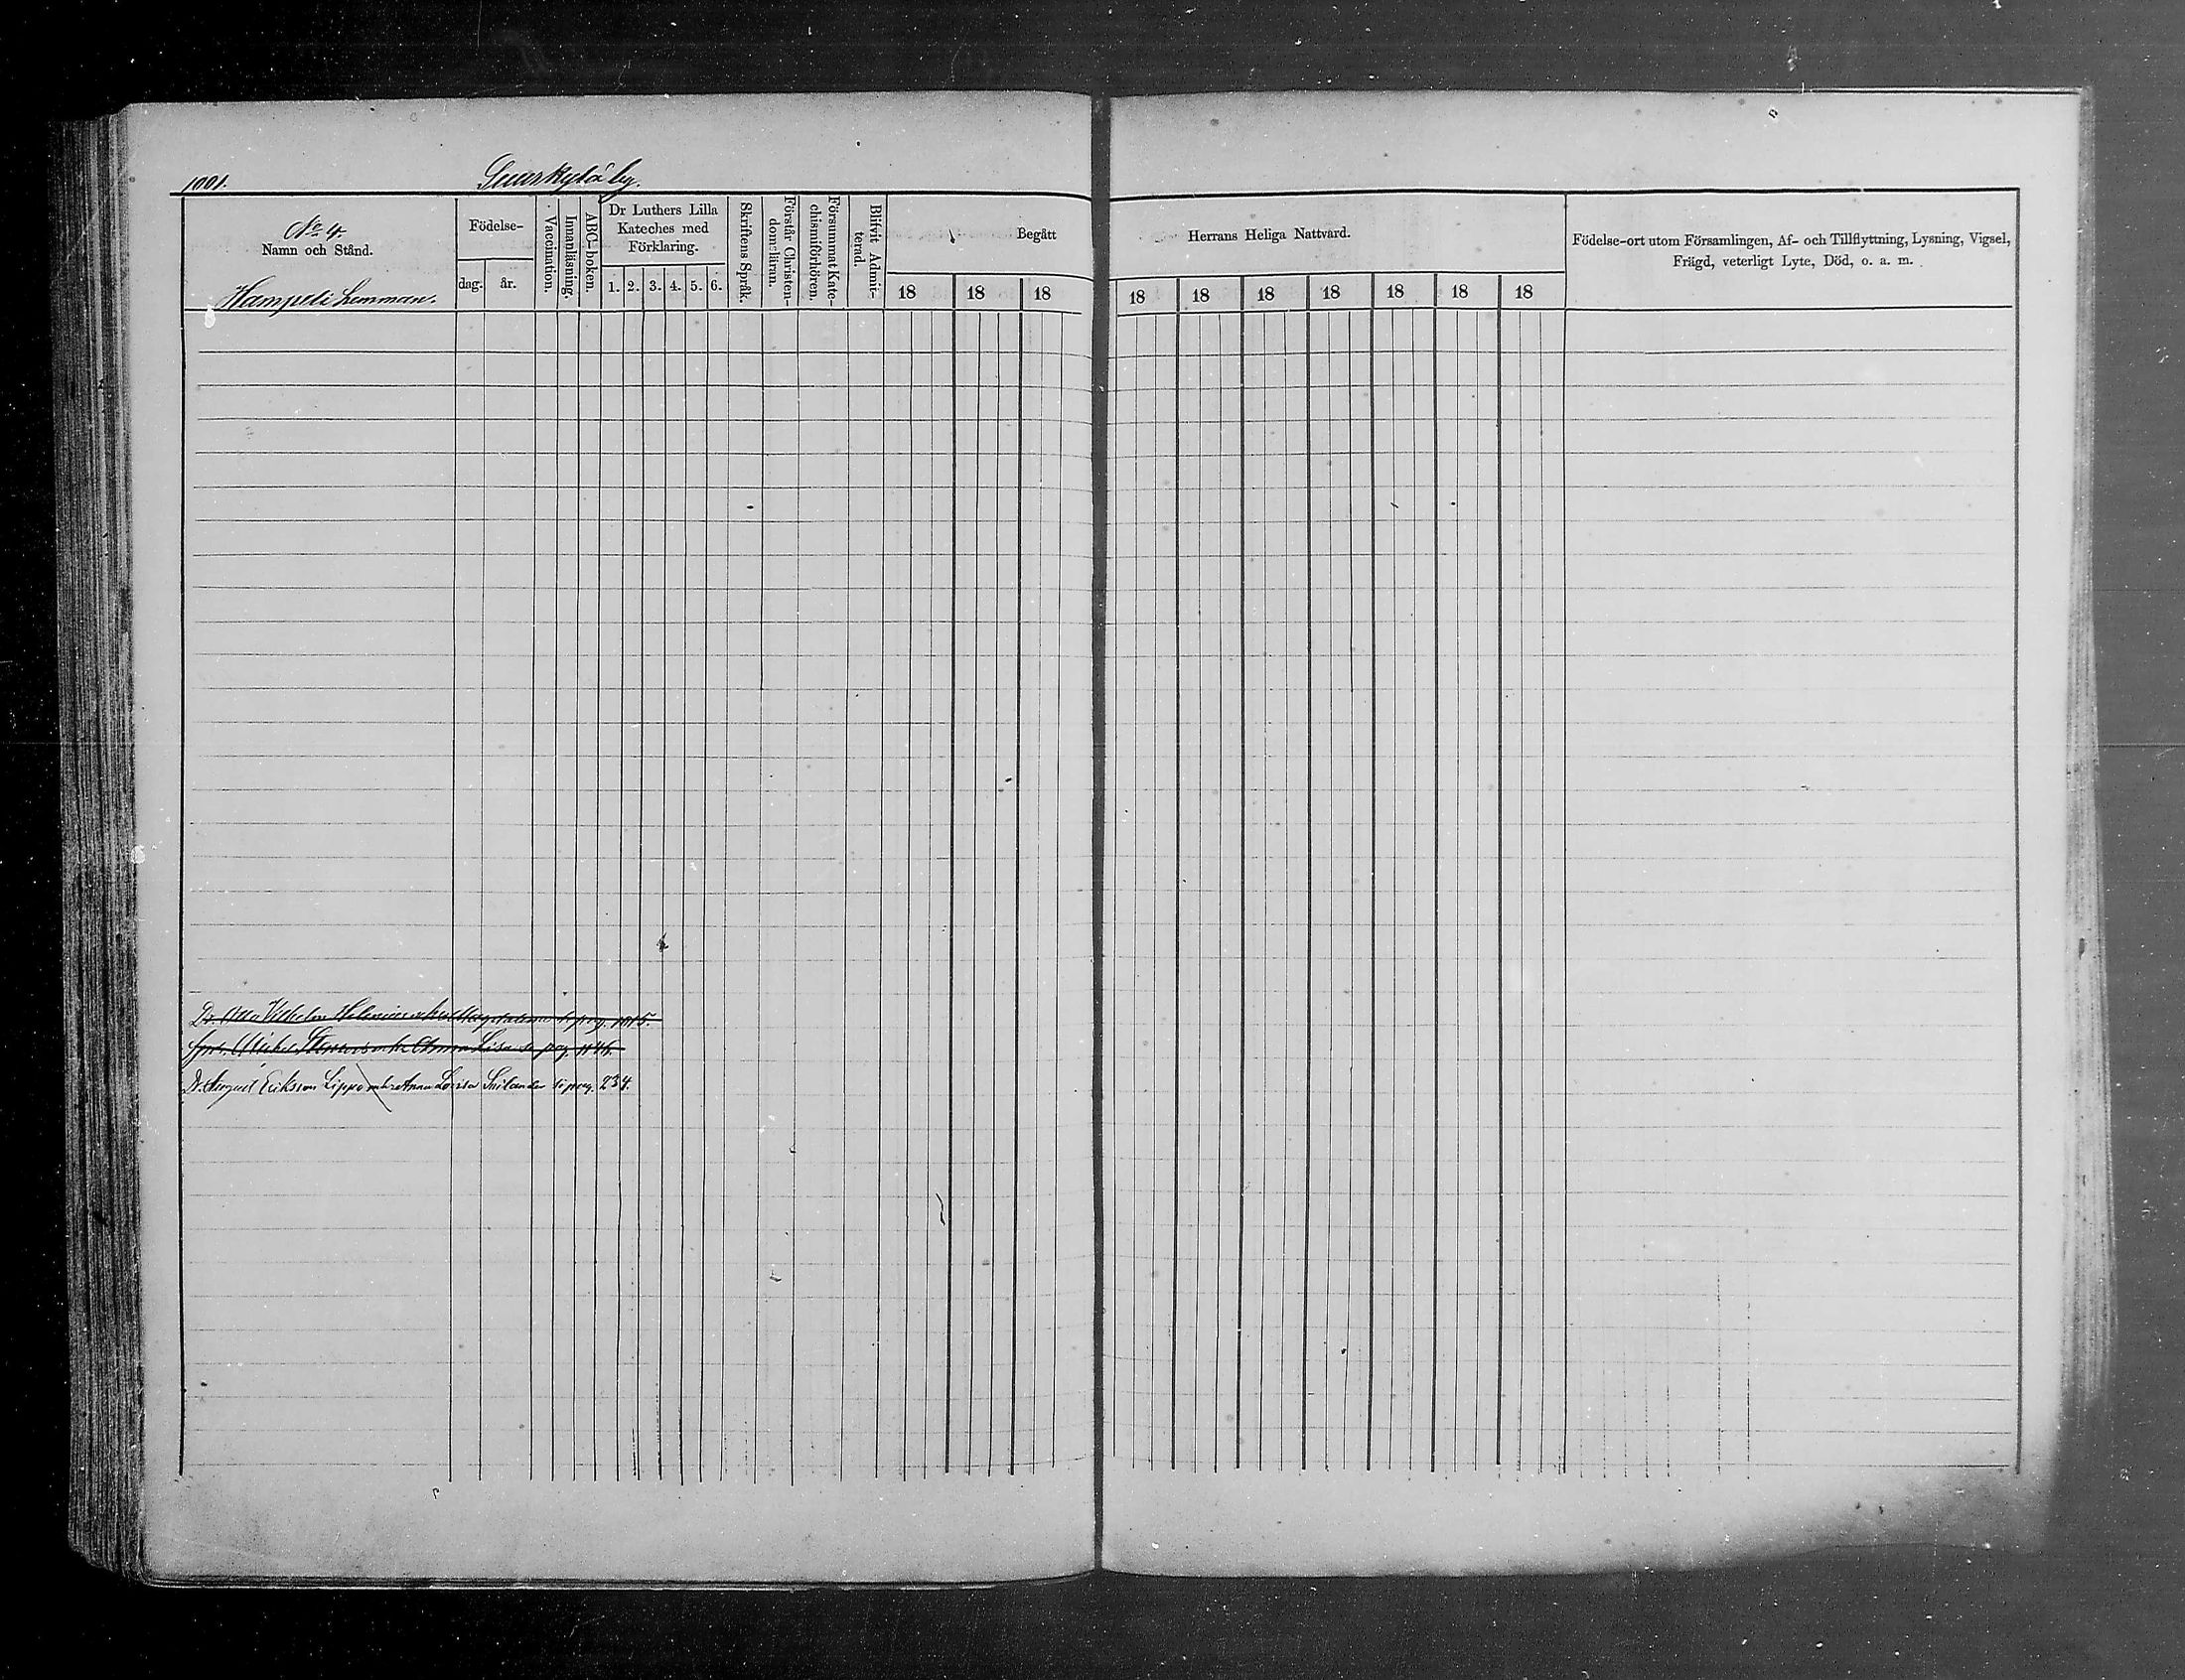 1001.
by.
No 4.
Namn och Stånd.
Hampeli hemman.
Födelse-
dag. år.
Vaccination.
Innanläsning.
ABC-boken.
Dr Luthers Lilla
Kateches med
Förklaring.
1. 2. 3. 4. 5. 6.
Skriftens Språk.
Förstår Christen-
domsläran.
Försummat Kate-
chismiförhören.
Blifvit Admit-
terad.
Begått
18 18 18
Herrans Heliga Nattvard.
18 18 18 18 18 18 18
Födelse-ort utom Församlingen, Af- och Tillflyttning, Lysning, Vigsel,
Frägd, veterligt Lyte, Död, o. a. m.
Dr. Otto Vilhelm Helenius Magdalena se pag. 1015.
Anna Lisa se pag. 1146.
D. August Eriksson Lippo m hr Anna Lovisa se pag. 234.